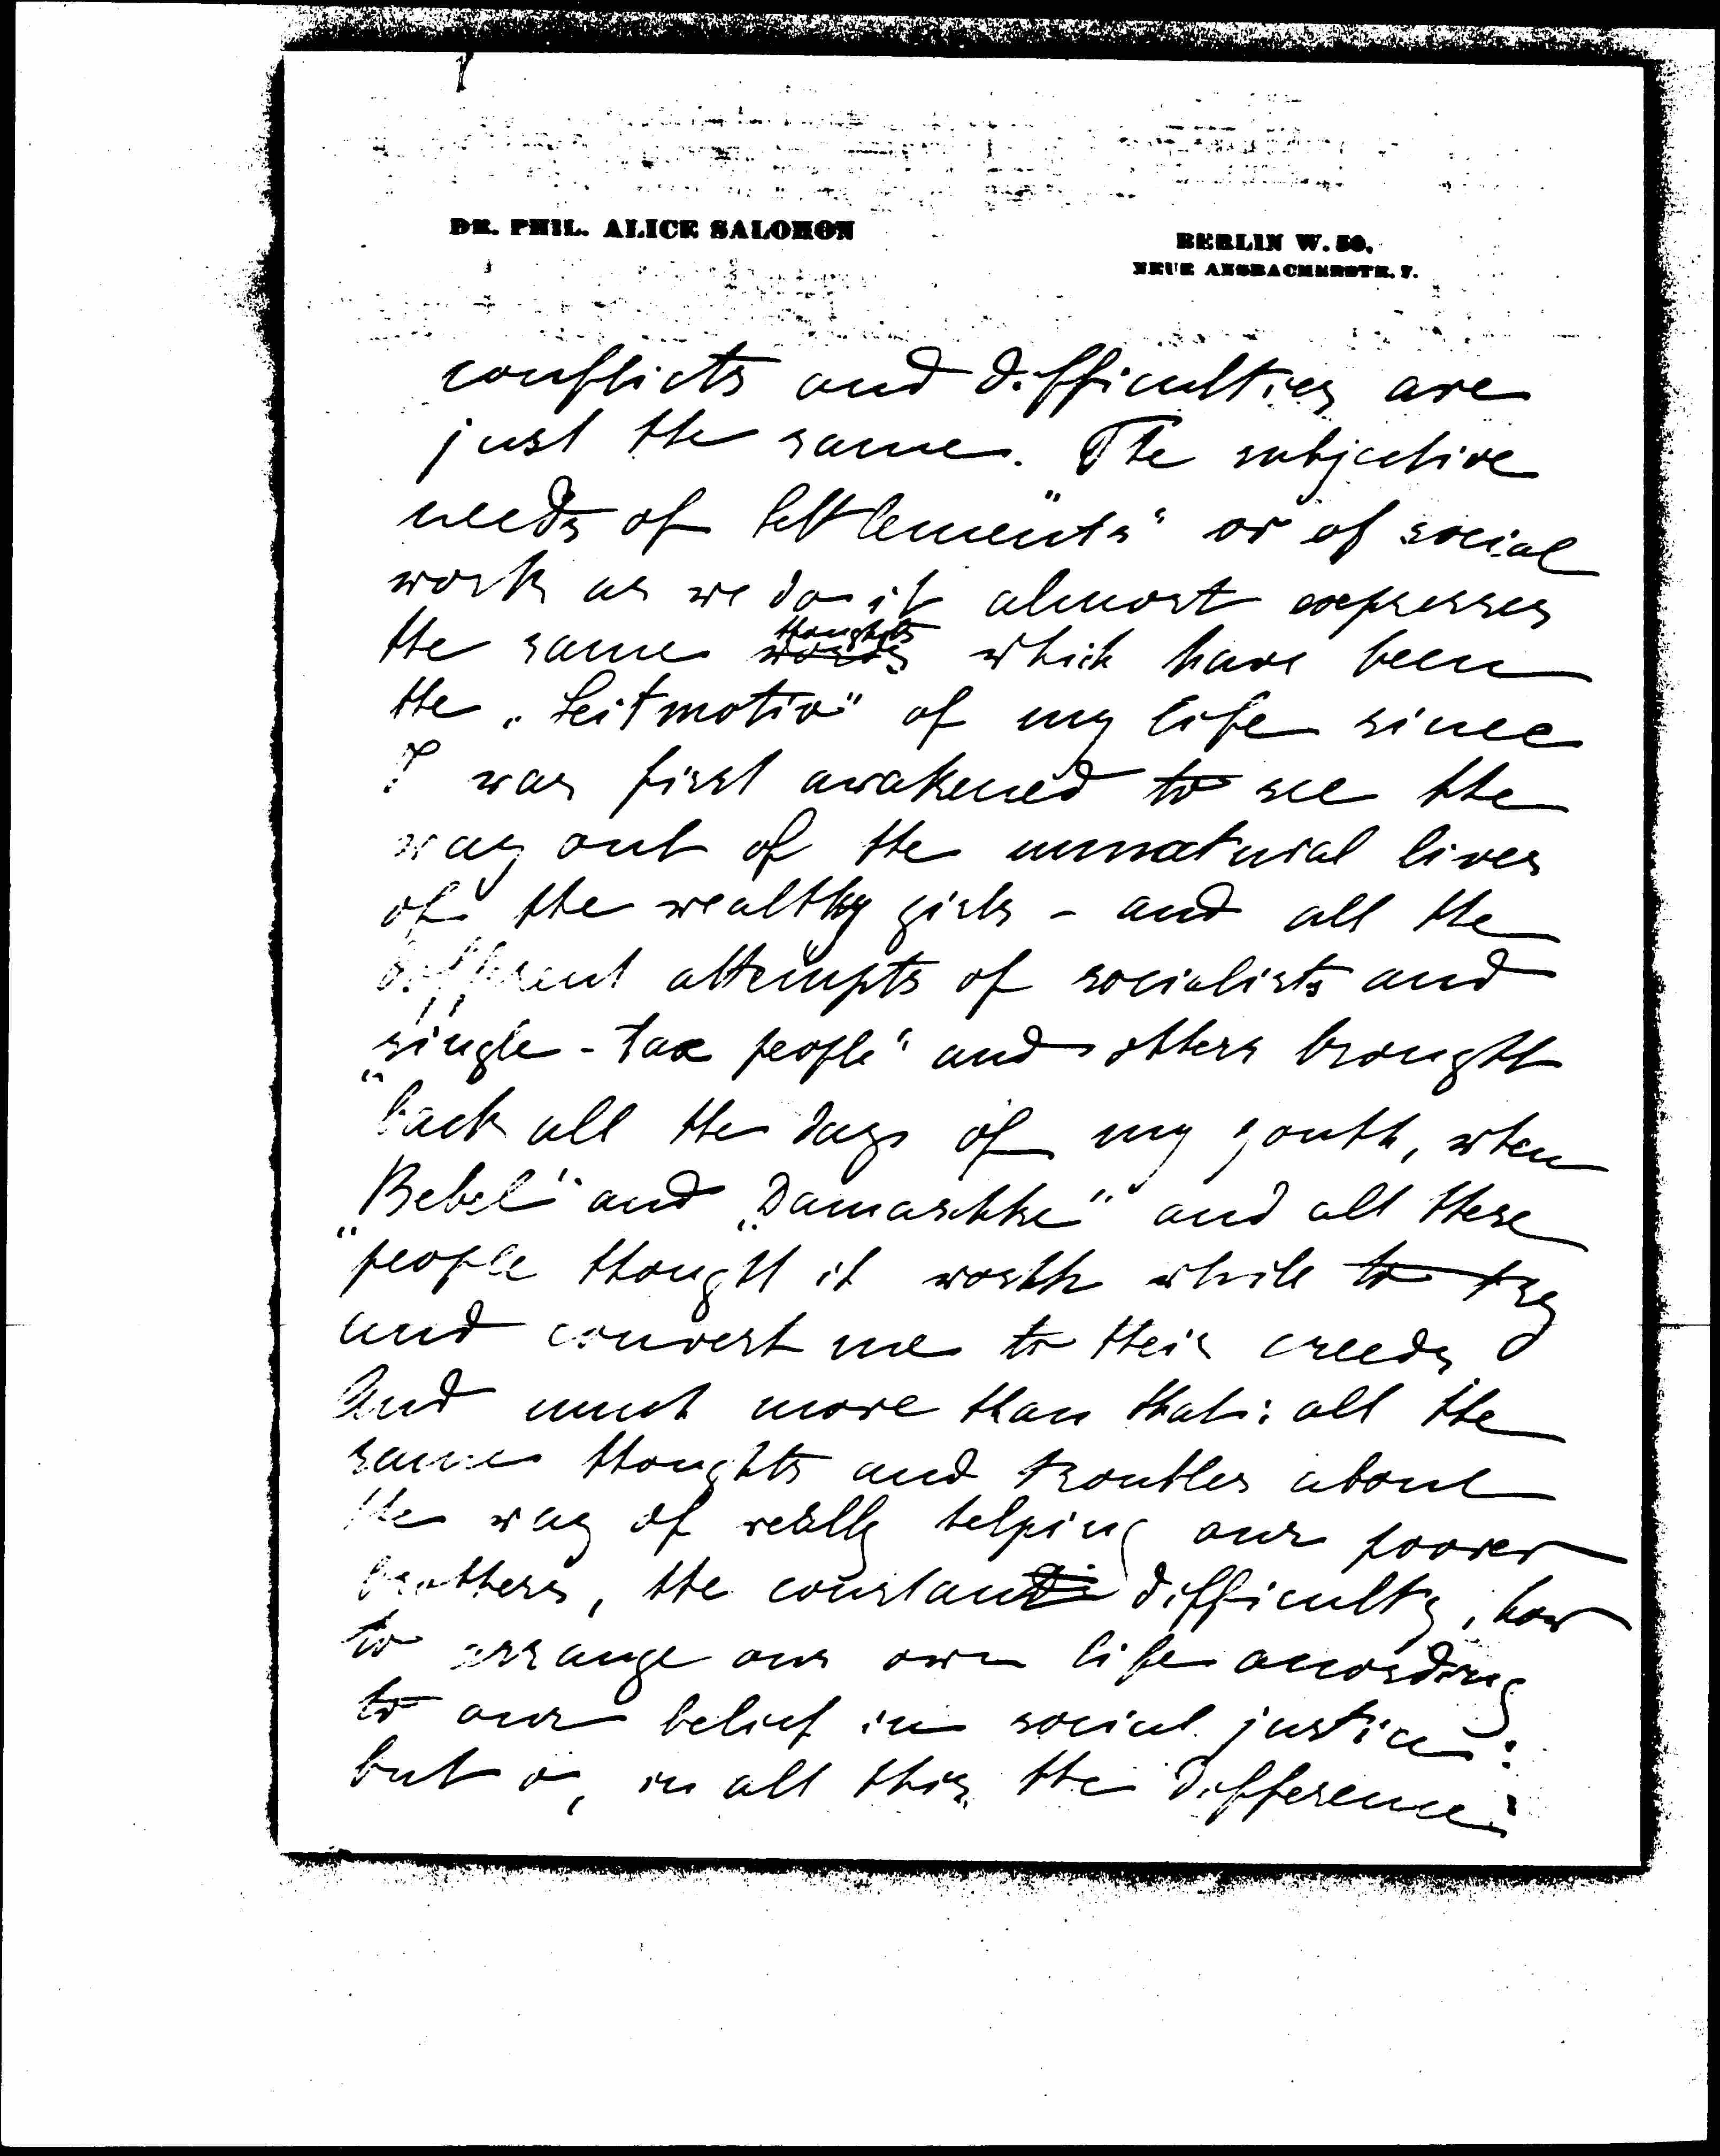 DR. PHIL. ALICE SALOMON
BERLIN W. 50.
NEUE ANSBACHERSTR. 7.
conflicts and difficulties are
just the same. The subjective
needs of Settlements" or of social
work as we do it almost expresses
the same words thoughts which have been
the „Leitmotiv" of my life since
I was first awakened to see the
way out of the unnatural lives
of the wealthy girls - and all the
different attempts of socialists and
„single-tax people" and others brought
back all the days of my youth, when
„Bebel" and „Damaschke" and all these
people thought it worth while to try
and convert me to their creeds
And much more than that: all the
same thoughts and troubles about
the way of really helping our poorer
brothers, the constant difficulty, how
to arrange our own life according
to our belief in social justice:
but o, in all this, the difference: